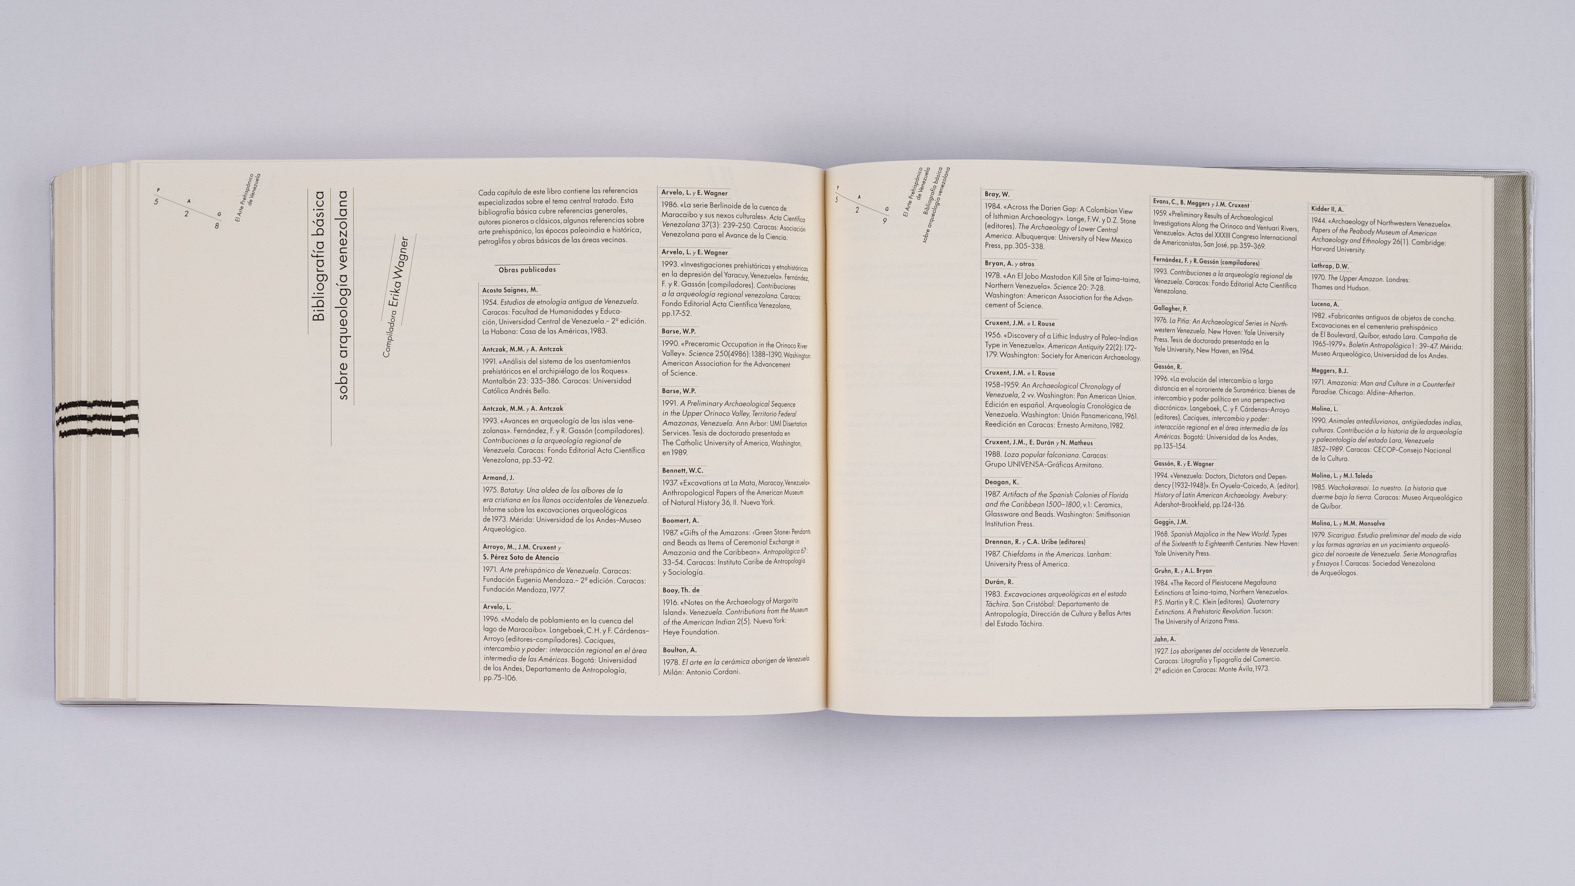 P A G
5 2 8
El Arte Prehispánico
de Venezuela
Bibliografía básica
sobre arqueología venezolana
Compiladora Erika Wagner
Cada capítulo de este libro contiene las referencias
especializadas sobre el tema central tratado. Esta
bibliografía básica cubre referencias generales,
autores pioneros o clásicos, algunas referencias sobre
arte prehispánico, las épocas paleoindia e histórica,
petroglifos y obras básicas de las áreas vecinas.
Obras publicadas
Acosta Saignes, M.
1954. Estudios de etnología antigua de Venezuela.
Caracas: Facultad de Humanidades y Educa-
ción, Universidad Central de Venezuela.– 2ª edición.
La Habana: Casa de las Américas, 1983.
Antczak, M.M. y A. Antczak
1991. «Análisis del sistema de los asentamientos
prehistóricos en el archipiélago de los Roques».
Montalbán 23: 335–386. Caracas: Universidad
Católica Andrés Bello.
Antczak, M.M. y A. Antczak
1993. «Avances en arqueología de las islas vene-
zolanas». Fernández, F. y R. Gassón (compiladores).
Contribuciones a la arqueología regional de
Venezuela. Caracas: Fondo Editorial Acta Científica
Venezolana, pp. 53–92.
Armand, J.
1975. Batatuy. Una aldea de los albores de la
era cristiana en los llanos occidentales de Venezuela.
Informe sobre las excavaciones arqueológicas
de 1973. Mérida: Universidad de los Andes–Museo
Arqueológico.
Arroyo, M., J.M. Cruxent y
S. Pérez Soto de Atencio
1971. Arte prehispánico de Venezuela. Caracas:
Fundación Eugenio Mendoza.– 2ª edición. Caracas:
Fundación Mendoza, 1977.
Arvelo, L.
1996. «Modelo de poblamiento en la cuenca del
lago de Maracaibo». Langebaek, C.H. y F. Cárdenas–
Arroyo (editores–compiladores). Caciques,
intercambio y poder: interacción regional en el área
intermedia de las Américas. Bogotá: Universidad
de los Andes, Departamento de Antropología,
pp. 75–106.
Arvelo, L. y E. Wagner
1986. «La serie Berlinoide de la cuenca de
Maracaibo y sus nexos culturales». Acta Científica
Venezolana 37(3): 239–250. Caracas: Asociación
Venezolana para el Avance de la Ciencia.
Arvelo, L. y E. Wagner
1993. «Investigaciones prehistóricas y etnohistóricas
en la depresión del Yaracuy, Venezuela». Fernández,
F. y R. Gassón (compiladores). Contribuciones
a la arqueología regional venezolana. Caracas:
Fondo Editorial Acta Científica Venezolana,
pp. 17–52.
Barse, W.P.
1990. «Preceramic Occupation in the Orinoco River
Valley». Science 250(4986): 1388–1390. Washington:
American Association for the Advancement
of Science.
Barse, W.P.
1991. A Preliminary Archaeological Sequence
in the Upper Orinoco Valley, Territorio Federal
Amazonas, Venezuela. Ann Arbor: UMI Disertation
Services. Tesis de doctorado presentada en
The Catholic University of America, Washington,
en 1989.
Bennett, W.C.
1937. «Excavations at La Mata, Maracay, Venezuela».
Anthropological Papers of the American Museum
of Natural History 36, II. Nueva York.
Boomert, A.
1987. «Gifts of the Amazons: ‹Green Stone› Pendants
and Beads as Items of Ceremonial Exchange in
Amazonia and the Caribbean». Antropológica 67:
33–54. Caracas: Instituto Caribe de Antropología
y Sociología.
Booy, Th. de
1916. «Notes on the Archaeology of Margarita
Island». Venezuela. Contributions from the Museum
of the American Indian 2(5). Nueva York:
Heye Foundation.
Boulton, A.
1978. El arte en la cerámica aborigen de Venezuela.
Milán: Antonio Cordani.
P A G
5 2 9
El Arte Prehispánico
de Venezuela
Bibliografía básica
sobre arqueología venezolana
Bray, W.
1984. «Across the Darien Gap: A Colombian View
of Isthmian Archaeology». Lange, F.W. y D.Z. Stone
(editores). The Archaeology of Lower Central
America. Albuquerque: University of New Mexico
Press, pp. 305–338.
Bryan, A. y otros
1978. «An El Jobo Mastodon Kill Site at Taima–taima,
Northern Venezuela». Science 20: 7-28.
Washington: American Association for the Advan-
cement of Science.
Cruxent, J.M. e I. Rouse
1956. «Discovery of a Lithic Industry of Paleo–Indian
Type in Venezuela». American Antiquity 22(2): 172–
179. Washington: Society for American Archaeology.
Cruxent, J.M. e I. Rouse
1958–1959. An Archaeological Chronology of
Venezuela, 2 vv. Washington: Pan American Union.
Edición en español. Arqueología Cronológica de
Venezuela. Washington: Unión Panamericana, 1961.
Reedición en Caracas: Ernesto Armitano, 1982.
Cruxent, J.M., E. Durán y N. Matheus
1988. Loza popular falconiana. Caracas:
Grupo UNIVENSA–Gráficas Armitano.
Deagan, K.
1987. Artifacts of the Spanish Colonies of Florida
and the Caribbean 1500–1800, v.1: Ceramics,
Glassware and Beads. Washington: Smithsonian
Institution Press.
Drennan, R. y C.A. Uribe (editores)
1987. Chiefdoms in the Americas. Lanham:
University Press of America.
Durán, R.
1983. Excavaciones arqueológicas en el estado
Táchira. San Cristóbal: Departamento de
Antropología, Dirección de Cultura y Bellas Artes
del Estado Táchira.
Evans, C., B. Meggers y J.M. Cruxent
1959. «Preliminary Results of Archaeological
Investigations Along the Orinoco and Ventuari Rivers,
Venezuela». Actas del XXXIII Congreso Internacional
de Americanistas, San José, pp. 359–369.
Fernández, F. y R. Gassón (compiladores)
1993. Contribuciones a la arqueología regional de
Venezuela. Caracas: Fondo Editorial Acta Científica
Venezolana.
Gallagher, P.
1976. La Pitía: An Archaeological Series in North-
western Venezuela. New Haven: Yale University
Press. Tesis de doctorado presentada en la
Yale University, New Haven, en 1964.
Gassón, R.
1996. «La evolución del intercambio a larga
distancia en el nororiente de Suramérica: bienes de
intercambio y poder político en una perspectiva
diacrónica». Langebaek, C. y F. Cárdenas–Arroyo
(editores). Caciques, intercambio y poder:
interacción regional en el área intermedia de las
Américas. Bogotá: Universidad de los Andes,
pp. 135–154.
Gassón, R. y E. Wagner
1994. «Venezuela: Doctors, Dictators and Depen-
dency (1932-1948)». En Oyuela–Caicedo, A. (editor).
History of Latin American Archaeology. Avebury:
Adershot–Brookfield, pp. 124–136.
Goggin, J.M.
1968. Spanish Majolica in the New World. Types
of the Sixteenth to Eighteenth Centuries. New Haven:
Yale University Press.
Gruhn, R. y A.L. Bryan
1984. «The Record of Pleistocene Megafauna
Extinctions at Taima–taima, Northern Venezuela».
P.S. Martin y R.C. Klein (editores). Quaternary
Extinctions. A Prehistoric Revolution. Tucson:
The University of Arizona Press.
Jahn, A.
1927. Los aborígenes del occidente de Venezuela.
Caracas: Litografía y Tipografía del Comercio.
2ª edición en Caracas: Monte Ávila, 1973.
Kidder II, A.
1944. «Archaeology of Northwestern Venezuela».
Papers of the Peabody Museum of American
Archaeology and Ethnology 26(1). Cambridge:
Harvard University.
Lathrap, D.W.
1970. The Upper Amazon. Londres:
Thames and Hudson.
Lucena, A.
1982. «Fabricantes antiguos de objetos de concha.
Excavaciones en el cementerio prehispánico
de El Boulevard, Quíbor, estado Lara. Campaña de
1965–1979». Boletín Antropológico 1: 39–47. Mérida:
Museo Arqueológico, Universidad de los Andes.
Meggers, B.J.
1971. Amazonia: Man and Culture in a Counterfeit
Paradise. Chicago: Aldine–Atherton.
Molina, L.
1990. Animales antediluvianos, antigüedades indias,
culturas. Contribución a la historia de la arqueología
y paleontología del estado Lara, Venezuela
1852–1989. Caracas: CECOP–Consejo Nacional
de la Cultura.
Molina, L. y M.I. Toledo
1985. Wachakaresai. Lo nuestro. La historia que
duerme bajo la tierra. Caracas: Museo Arqueológico
de Quíbor.
Molina, L. y M.M. Monsalve
1979. Sicarigua. Estudio preliminar del modo de vida
y las formas agrarias en un yacimiento arqueoló-
gico del noroeste de Venezuela. Serie Monografías
y Ensayos 1. Caracas: Sociedad Venezolana
de Arqueólogos.